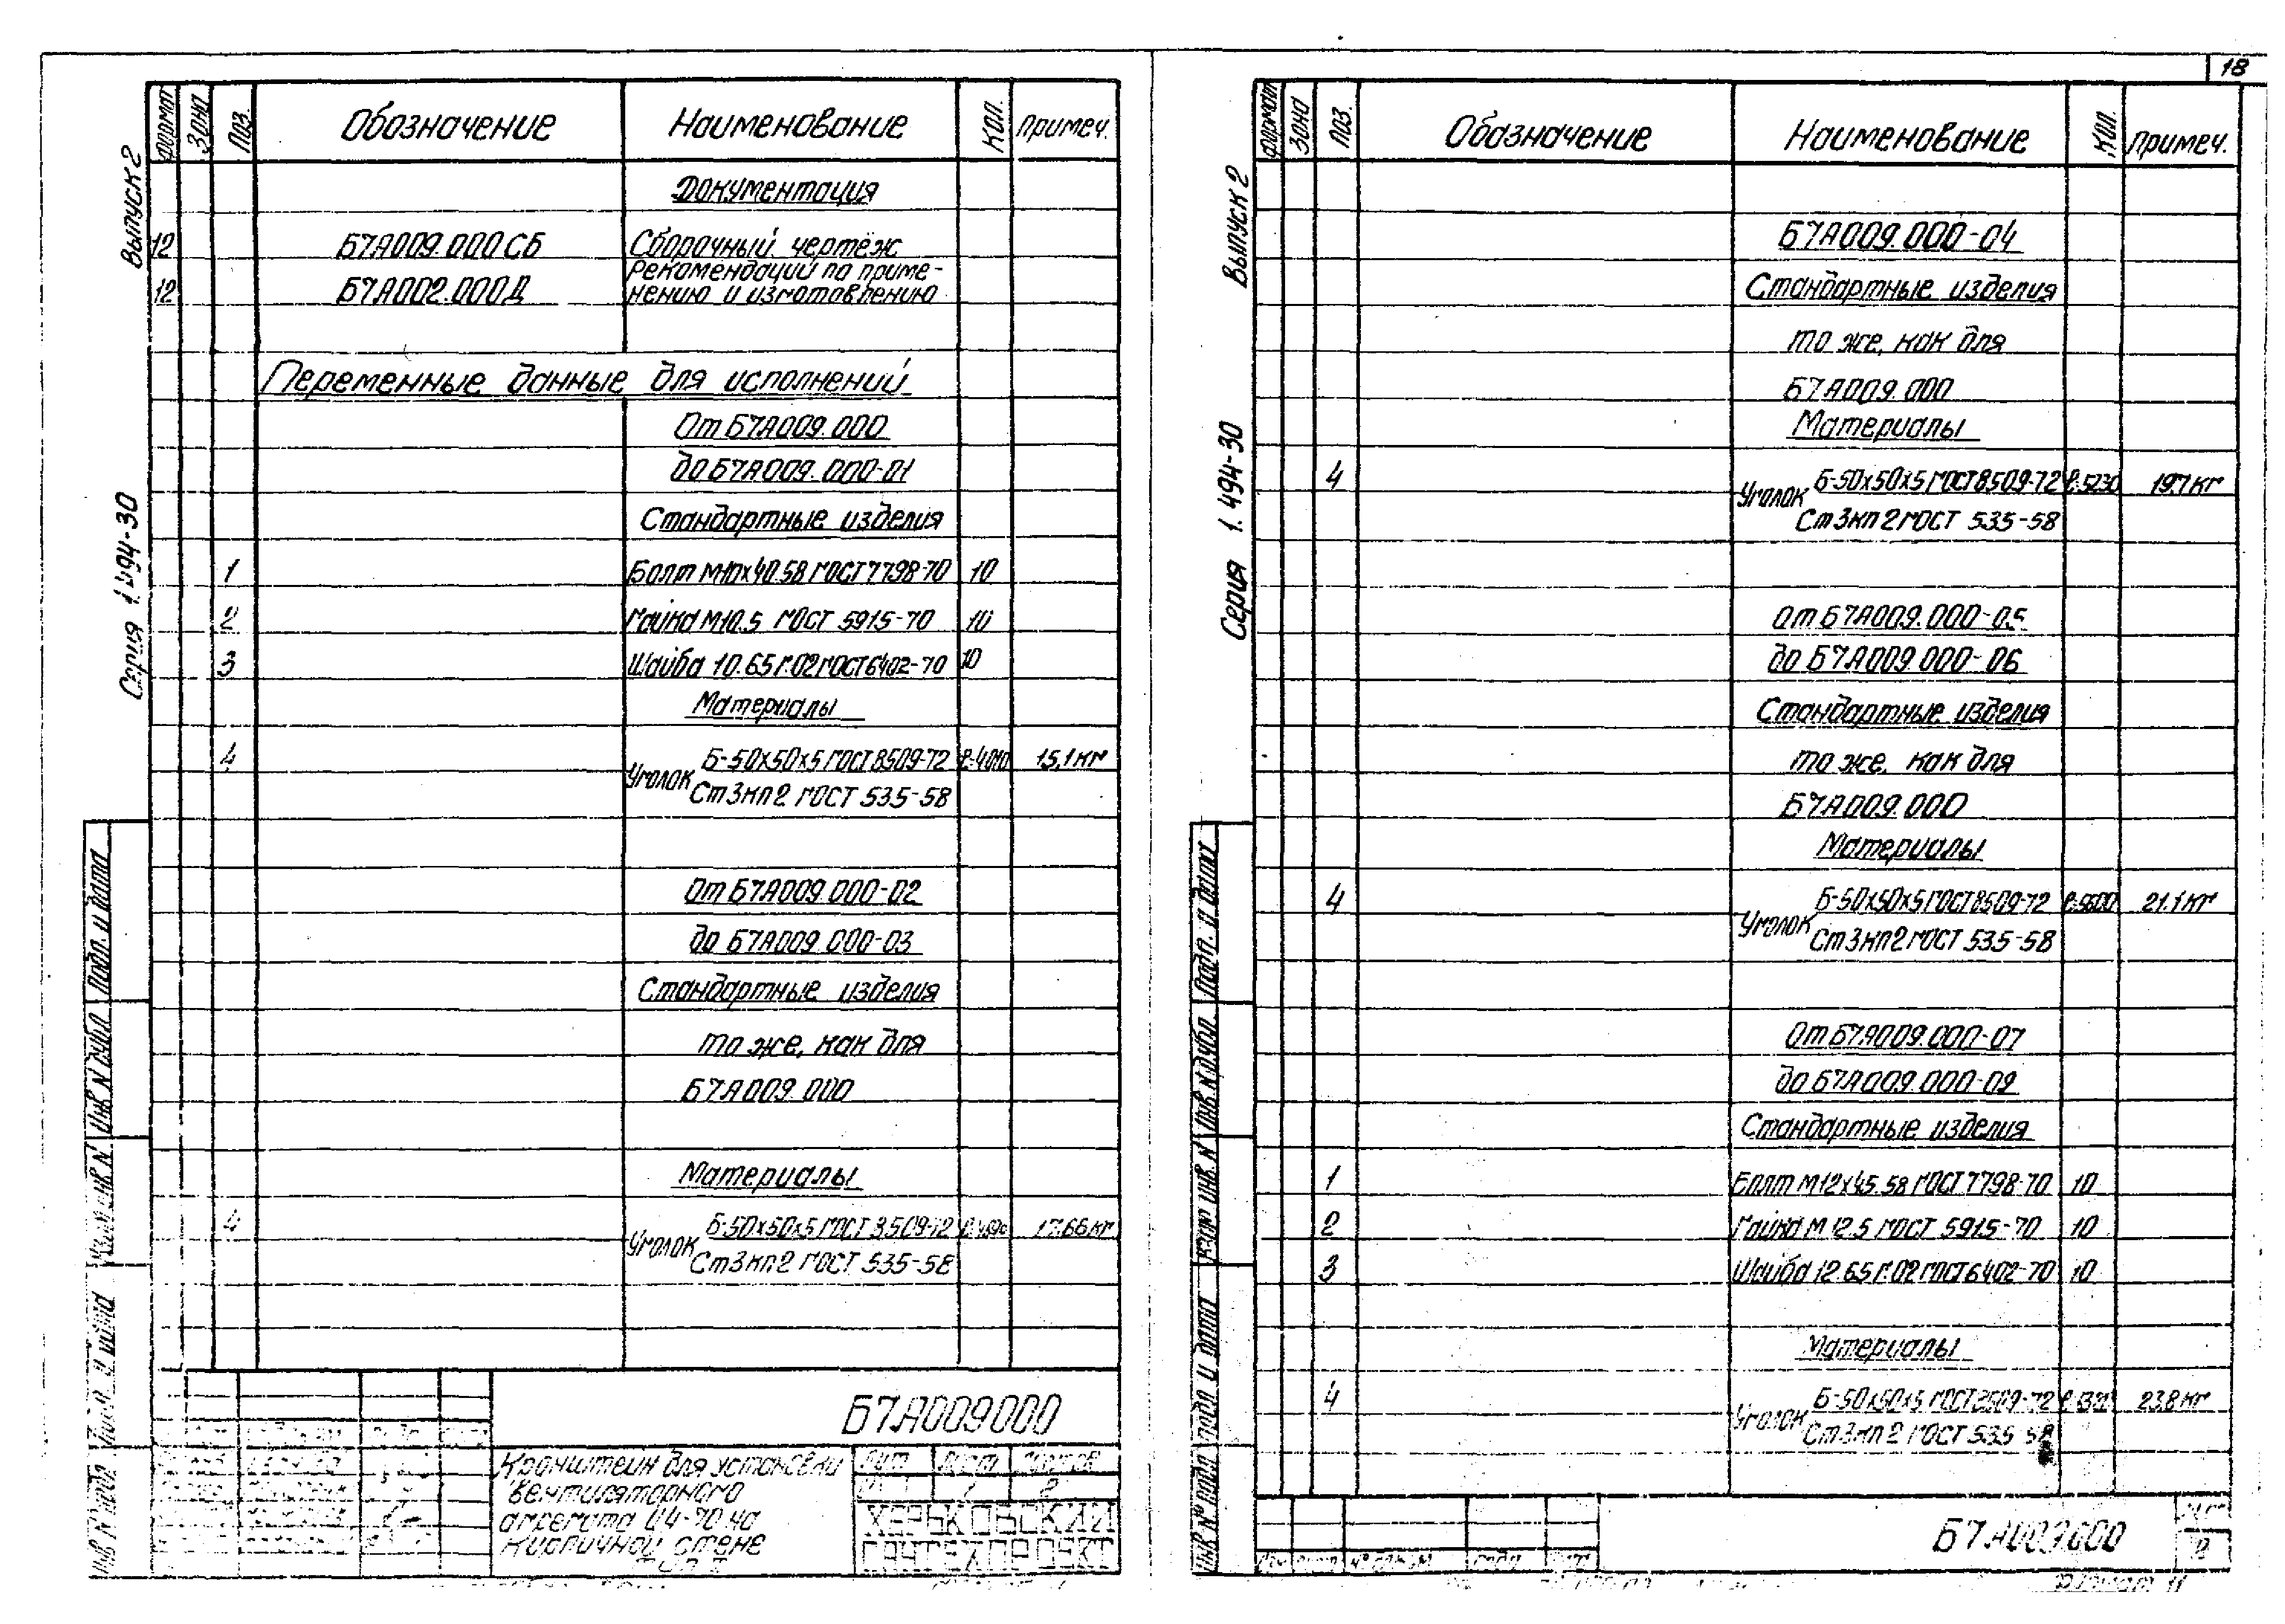 18
Выпуск 2
Серия 1.494-30
Формат Зона Поз. Обозначение Наименование Кол. Примеч.
Документация
12 Б7А009.000СБ Сборочный чертёж
12 Б7А002.000Д Рекомендации по приме-
нению и изготовлению
Переменные данные для исполнений
От Б7А009.000
до Б7А009.000-01
Стандартные изделия
1 Болт М10х40.58 ГОСТ 7798-70 10
2 Гайка М10.5 ГОСТ 5915-70 10
3 Шайба 10.65Г.02 ГОСТ 6402-70 10
Материалы
4 Уголок Б-50х50х5 ГОСТ 8509-72 ℓ-4010 15,1 кг
Ст3кп2 ГОСТ 535-58
От Б7А009.000-02
до Б7А009.000-03
Стандартные изделия
то же, как для
Б7А009.000
Материалы
4 Уголок Б-50х50х5 ГОСТ 8509-72 17.66 кг
Ст3кп2 ГОСТ 535-58
Подп. и дата
Инв.N дубл.
Взам. инв.N
Подп. и дата
Инв.N подл.
Б7А009000
Кронштеин для установки
вентиляторного
агрегата Ц4-70 на
кирпичной стене
Лит Лист Листов
1 2
ХАРЬКОВСКИЙ
САНТЕХПРОЕКТ
Выпуск 2
Серия 1.494-30
Формат Зона Поз. Обозначение Наименование Кол. Примеч.
Б7А009.000-04
Стандартные изделия
то же, как для
Б7А009.000
Материалы
4 Уголок Б-50х50х5 ГОСТ 8509-72 ℓ-5230 19.7 кг
Ст3кп2 ГОСТ 535-58
От Б7А009.000-05
до Б7А009.000-06
Стандартные изделия
то же, как для
Б7А009.000
Материалы
4 Уголок Б-50х50х5 ГОСТ 8509-72 ℓ-5600 21.1 кг
Ст3кп2 ГОСТ 535-58
От Б7А009.000-07
до Б7А009.000-09
Стандартные изделия
1 Болт М12х45.58 ГОСТ 7798-70 10
2 Гайка М12.5 ГОСТ 5915-70 10
3 Шайба 12.65Г.02 ГОСТ 6402-70 10
Материалы
4 Уголок Б-50х50х5 ГОСТ 8509-72 23.8 кг
Ст3кп2 ГОСТ 535-58
Подп. и дата
Инв.N дубл.
Взам. инв.N
Подп. и дата
Инв.N° подл.
Б7А009000
Формат 11